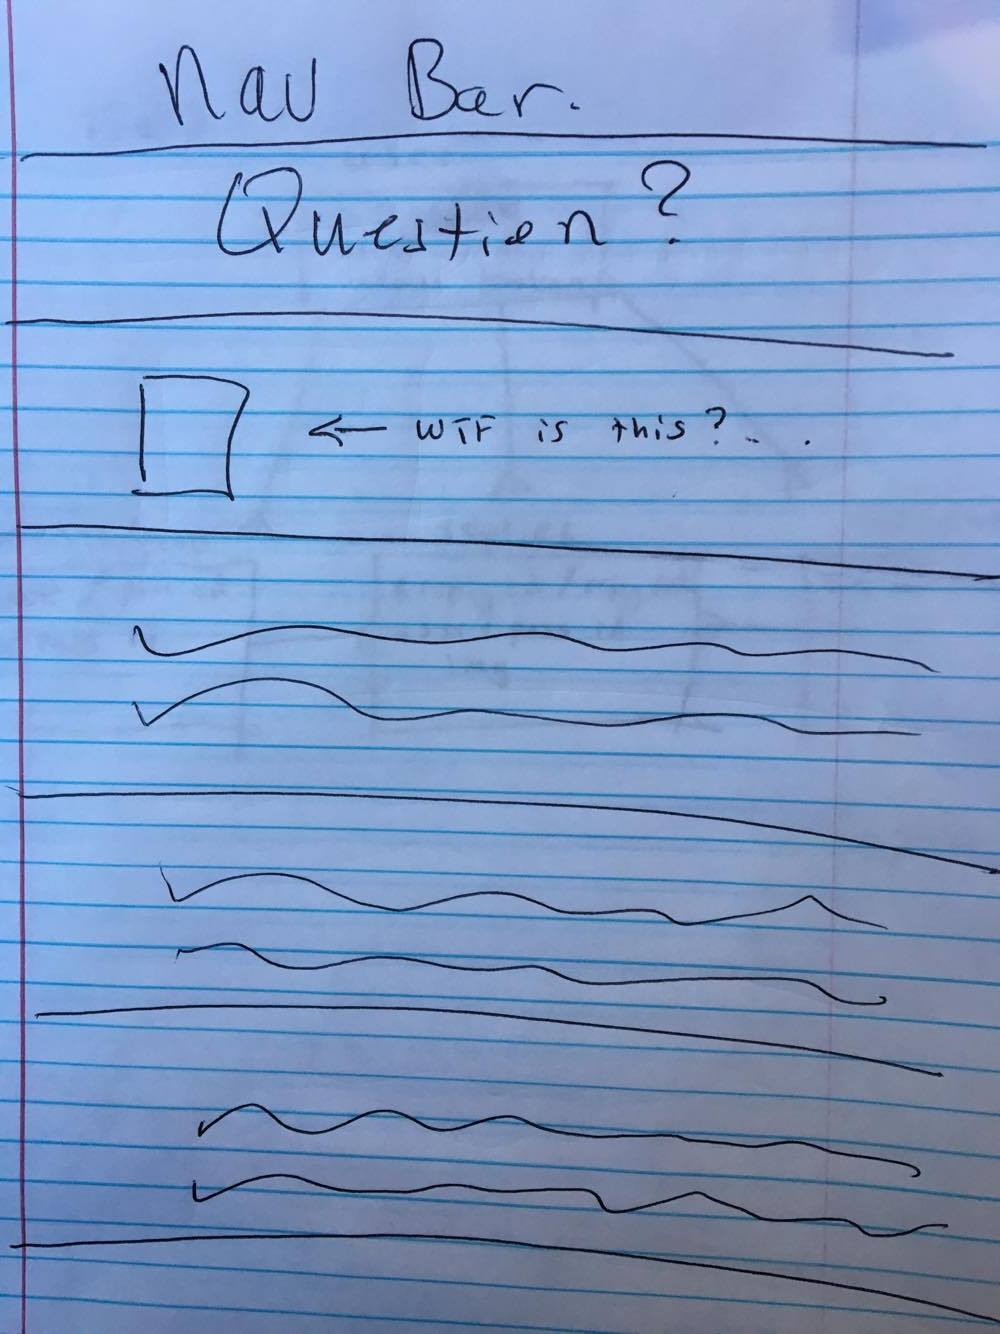 Nav Bar.
Question?
← WTF is this?...